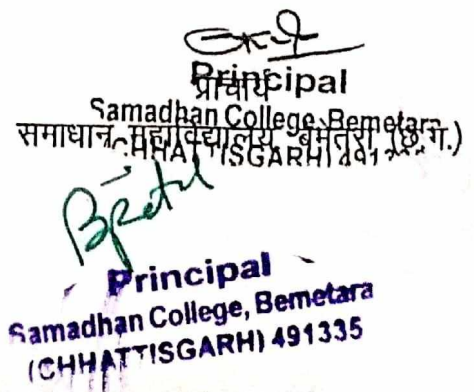 Principal
प्राचार्य
Samadhan College, Bemetara
समाधान महाविद्यालय, बेमेतरा (छ.ग.)
CHHATTISGARH) 491
Principal
Samadhan College, Bemetara
(CHHATTISGARH) 491335